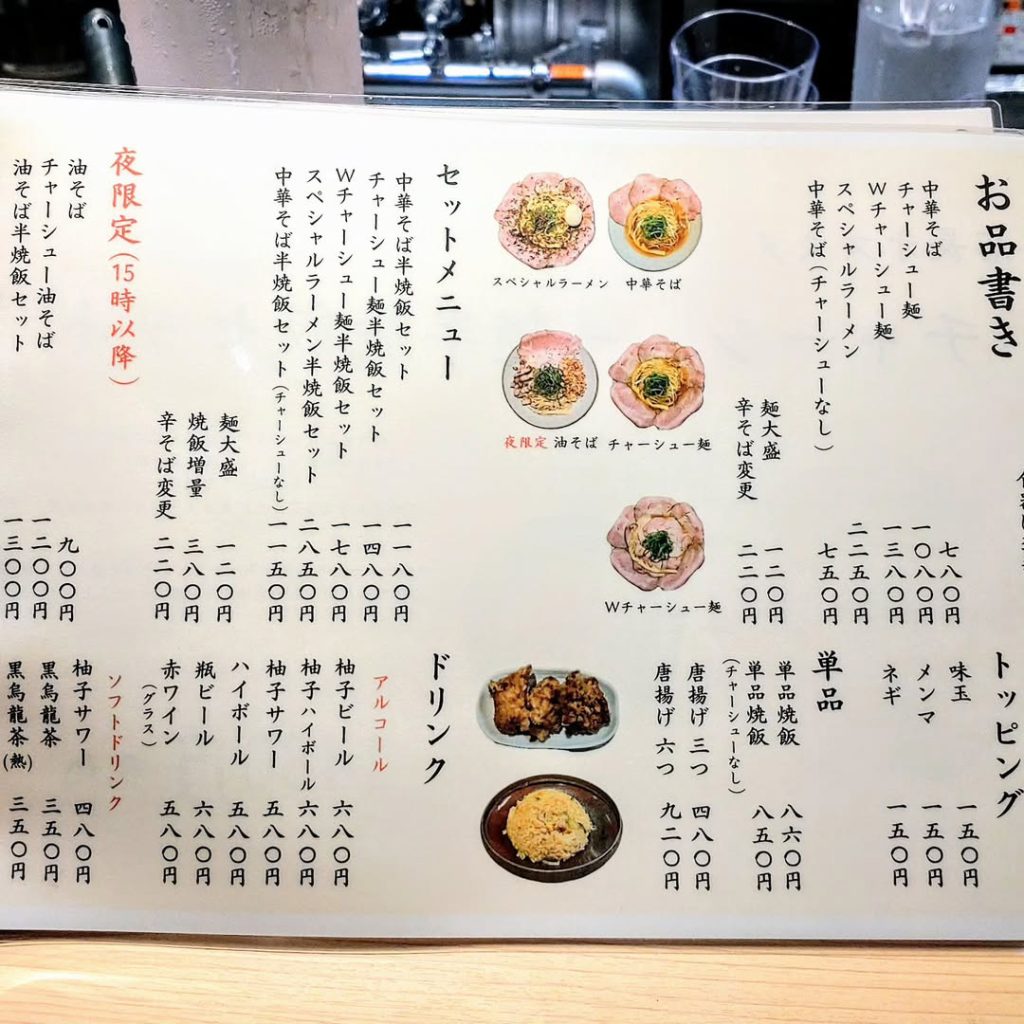 お品書き
中華そば 七八〇円
チャーシュー麺 一〇八〇円
Wチャーシュー麺 一三八〇円
スペシャルラーメン 二二五〇円
中華そば(チャーシューなし) 七五〇円
麺大盛 一二〇円
辛そば変更 二二〇円
中華そば
スペシャルラーメン
チャーシュー麺
夜限定 油そば
Wチャーシュー麺
セットメニュー
中華そば半焼飯セット 一一八〇円
チャーシュー麺半焼飯セット 一四八〇円
Wチャーシュー麺半焼飯セット 一七八〇円
スペシャルラーメン半焼飯セット 二八五〇円
中華そば半焼飯セット(チャーシューなし) 一一五〇円
麺大盛 一二〇円
焼飯増量 三八〇円
辛そば変更 二二〇円
夜限定(15時以降)
油そば 九〇〇円
チャーシュー油そば 一二〇〇円
油そば半焼飯セット 一三〇〇円
トッピング
味玉 一五〇円
メンマ 一五〇円
ネギ 一五〇円
単品
単品焼飯 八六〇円
単品焼飯 八五〇円
(チャーシューなし)
唐揚げ 三つ 四八〇円
唐揚げ 六つ 九二〇円
ドリンク
アルコール
柚子ビール 六八〇円
柚子ハイボール 六八〇円
柚子サワー 五八〇円
ハイボール 五八〇円
瓶ビール 六八〇円
赤ワイン 五八〇円
(グラス)
ソフトドリンク
柚子サワー 四八〇円
黒烏龍茶 三五〇円
黒烏龍茶(熱) 三五〇円